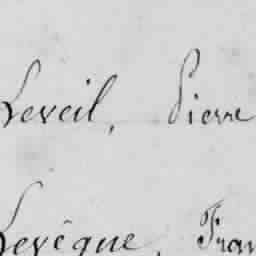 Leveil, Pierre
Levêque, Fran